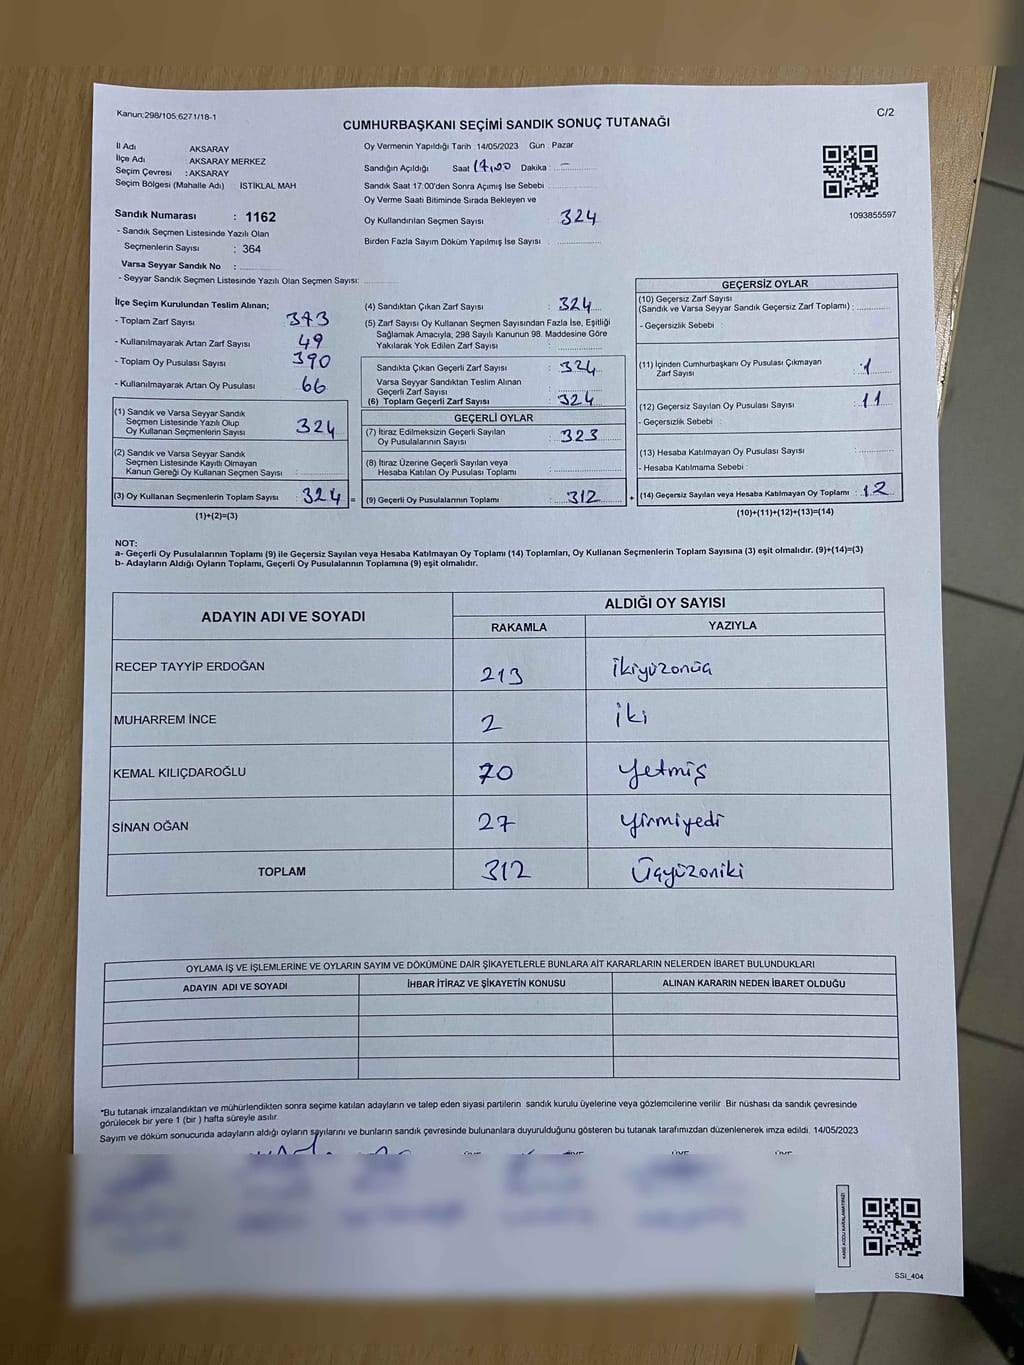 Kanun:298/105.6271/18-1
C/2
CUMHURBAŞKANI SEÇİMİ SANDIK SONUÇ TUTANAĞI
İl Adı : AKSARAY
İlçe Adı : AKSARAY MERKEZ
Seçim Çevresi : AKSARAY
Seçim Bölgesi (Mahalle Adı) : ISTİKLAL MAH
Sandık Numarası : 1162
- Sandık Seçmen Listesinde Yazılı Olan
Seçmenlerin Sayısı : 364
Varsa Seyyar Sandık No :
- Seyyar Sandık Seçmen Listesinde Yazılı Olan Seçmen Sayısı:
Oy Vermenin Yapıldığı Tarih : 14/05/2023 Gün : Pazar
Sandığın Açıldığı Saat 17,00 Dakika : -
Sandık Saat 17:00'den Sonra Açımış Ise Sebebi :
Oy Verme Saati Bitiminde Sırada Bekleyen ve
Oy Kullandırılan Seçmen Sayısı : 324
Birden Fazla Sayım Döküm Yapılmış İse Sayısı :
1093855597
İlçe Seçim Kurulundan Teslim Alınan;
- Toplam Zarf Sayısı : 373
- Kullanılmayarak Artan Zarf Sayısı : 49
- Toplam Oy Pusulası Sayısı : 390
- Kullanılmayarak Artan Oy Pusulası : 66
(1) Sandık ve Varsa Seyyar Sandık
Seçmen Listesinde Yazılı Olup
Oy Kullanan Seçmenlerin Sayısı : 324
(2) Sandık ve Varsa Seyyar Sandık
Seçmen Listesinde Kayıtlı Olmayan
Kanun Gereği Oy Kullanan Seçmen Sayısı :
(3) Oy Kullanan Seçmenlerin Toplam Sayısı : 324 =
(1)+(2)=(3)
(4) Sandıktan Çıkan Zarf Sayısı : 324
(5) Zarf Sayısı Oy Kullanan Seçmen Sayısından Fazla İse, Eşitliği
Sağlamak Amacıyla, 298 Sayılı Kanunun 98. Maddesine Göre
Yakılarak Yok Edilen Zarf Sayısı :
Sandıkta Çıkan Geçerli Zarf Sayısı : 324
Varsa Seyyar Sandıktan Teslim Alınan
Geçerli Zarf Sayısı :
(6) Toplam Geçerli Zarf Sayısı : 324
GEÇERLİ OYLAR
(7) İtiraz Edilmeksizin Geçerli Sayılan
Oy Pusulalarının Sayısı : 323
(8) İtiraz Üzerine Geçerli Sayılan veya
Hesaba Katılan Oy Pusulası Toplamı :
(9) Geçerli Oy Pusulalarının Toplamı : 312 +
GEÇERSİZ OYLAR
(10) Geçersiz Zarf Sayısı
(Sandık ve Varsa Seyyar Sandık Geçersiz Zarf Toplamı) :
- Geçersizlik Sebebi :
(11) İçinden Cumhurbaşkanı Oy Pusulası Çıkmayan
Zarf Sayısı : 1
(12) Geçersiz Sayılan Oy Pusulası Sayısı : 11
- Geçersizlik Sebebi :
(13) Hesaba Katılmayan Oy Pusulası Sayısı :
- Hesaba Katılmama Sebebi :
(14) Geçersiz Sayılan veya Hesaba Katılmayan Oy Toplamı : 12
(10)+(11)+(12)+(13)=(14)
NOT:
a- Geçerli Oy Pusulalarının Toplamı (9) ile Geçersiz Sayılan veya Hesaba Katılmayan Oy Toplamı (14) Toplamları, Oy Kullanan Seçmenlerin Toplam Sayısına (3) eşit olmalıdır. (9)+(14)=(3)
b- Adayların Aldığı Oyların Toplamı, Geçerli Oy Pusulalarının Toplamına (9) eşit olmalıdır.
ADAYIN ADI VE SOYADI
ALDIĞI OY SAYISI
RAKAMLA YAZIYLA
RECEP TAYYİP ERDOĞAN 213 İkiyüzonüç
MUHARREM İNCE 2 iki
KEMAL KILIÇDAROĞLU 70 Yetmiş
SİNAN OĞAN 27 Yirmiyedi
TOPLAM 312 Üçyüzoniki
OYLAMA İŞ VE İŞLEMLERİNE VE OYLARIN SAYIM VE DÖKÜMÜNE DAİR ŞİKAYETLERLE BUNLARA AİT KARARLARIN NELERDEN İBARET BULUNDUKLARI
ADAYIN ADI VE SOYADI İHBAR İTİRAZ VE ŞİKAYETİN KONUSU ALINAN KARARIN NEDEN İBARET OLDUĞU
*Bu tutanak imzalandıktan ve mühürlendikten sonra seçime katılan adayların ve talep eden siyasi partilerin sandık kurulu üyelerine veya gözlemcilerine verilir. Bir nüshası da sandık çevresinde
görülecek bir yere 1 (bir ) hafta süreyle asılır.
Sayım ve döküm sonucunda adayların aldığı oyların sayılarını ve bunların sandık çevresinde bulunanlara duyurulduğunu gösteren bu tutanak tarafımızdan düzenlenerek imza edildi. 14/05/2023
KARE KODU KARALAMAYINIZ!
SSI_404